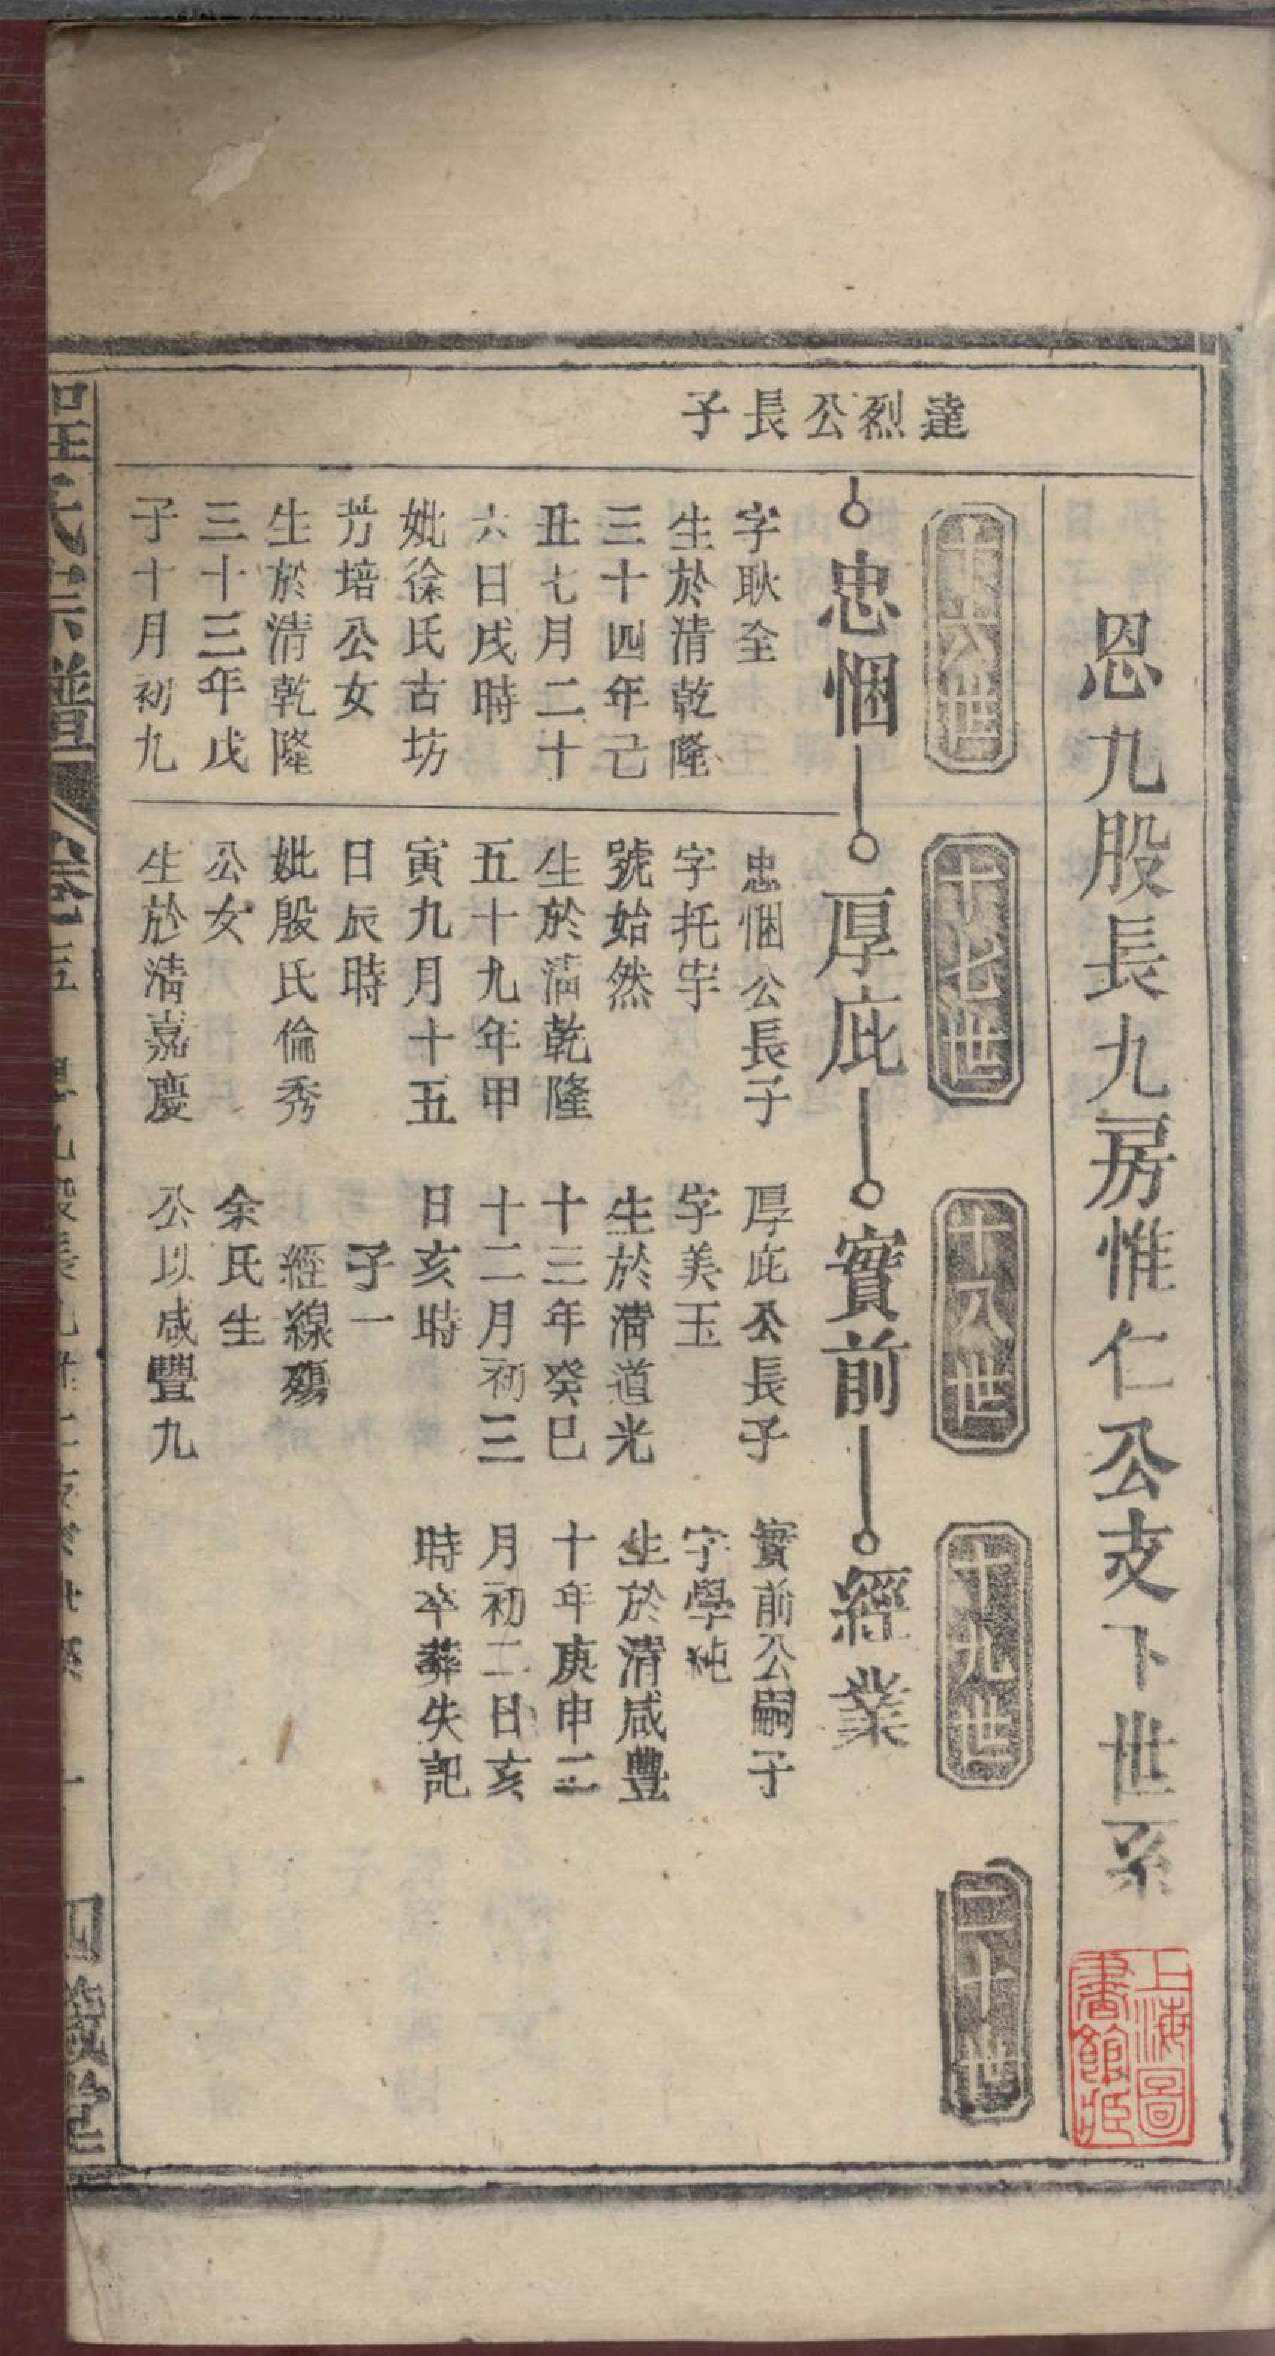 恩九股長九房惟仁公支下世系
上海圖書館藏
十六世
十七世
十八世
十九世
二十世
達烈公長子
忠悃
厚庇
實前
經業
字耿全
生於清乾隆
三十四年己
丑七月二十
六日戌時
妣徐氏古坊
芳培公女
生於清乾隆
三十三年戊
子十月初九
忠悃公長子
字托宇
號始然
生於清乾隆
五十九年甲
寅九月十五
日辰時
妣殷氏倫秀
公女
生於清嘉慶
厚庇公長子
字美玉
生於清道光
十三年癸巳
十二月初三
日亥時
子一
經線殤
余氏生
公以咸豐九
實前公嗣子
字學純
生於清咸豐
十年庚申二
月初二日亥
時卒葬失記
程氏宗譜
卷五
四箴堂